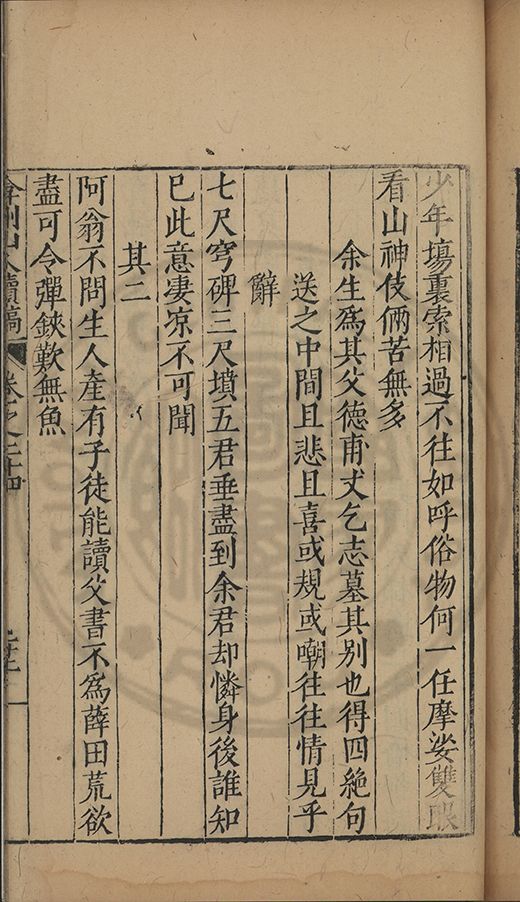 少年場裏索相過不往如呼俗物何一任摩娑雙眼
看山神伎倆苦無多
余生爲其父德甫丈乞志墓其別也得四絶句
送之中間且悲且喜或規或嘲往往情見乎
辭
七尺穹碑三尺墳五君垂盡到余君却憐身後誰知
已此意凄凉不可聞
其二
阿翁不問生人產有子徒能讀父書不爲薛田荒欲
盡可令彈鋏歎無魚
弇州山人續稿 卷之二十四